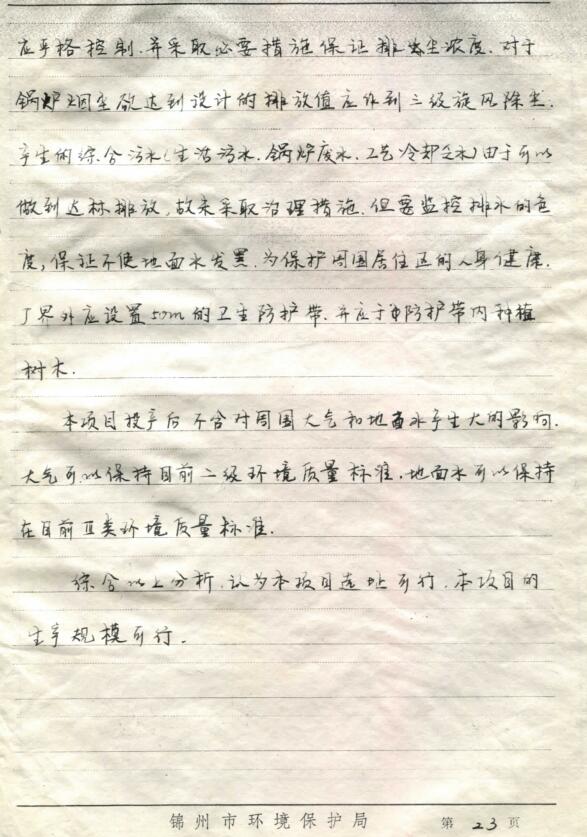 应严格控制.并采取必要措施保证排尘浓度.对于
锅炉烟尘欲达到设计的排放值应作到三级旋风除尘.
产生的综合污水(生活污水.锅炉废水.工艺冷却乏水)由于可以
做到达标排放,故未采取治理措施.但要监控排水的色
度,保证不使地面水发黑.为保护周围居住区的人身健康.
厂界外应设置50m的卫生防护带.并应于防护带内种植
树木.
本项目投产后不会对周围大气和地面水产生大的影响.
大气可以保持目前二级环境质量标准,地面水可以保持
在目前Ⅱ类环境质量标准.
综合以上分析,认为本项目选址可行.本项目的
生产规模可行.
锦州市环境保护局 第23页